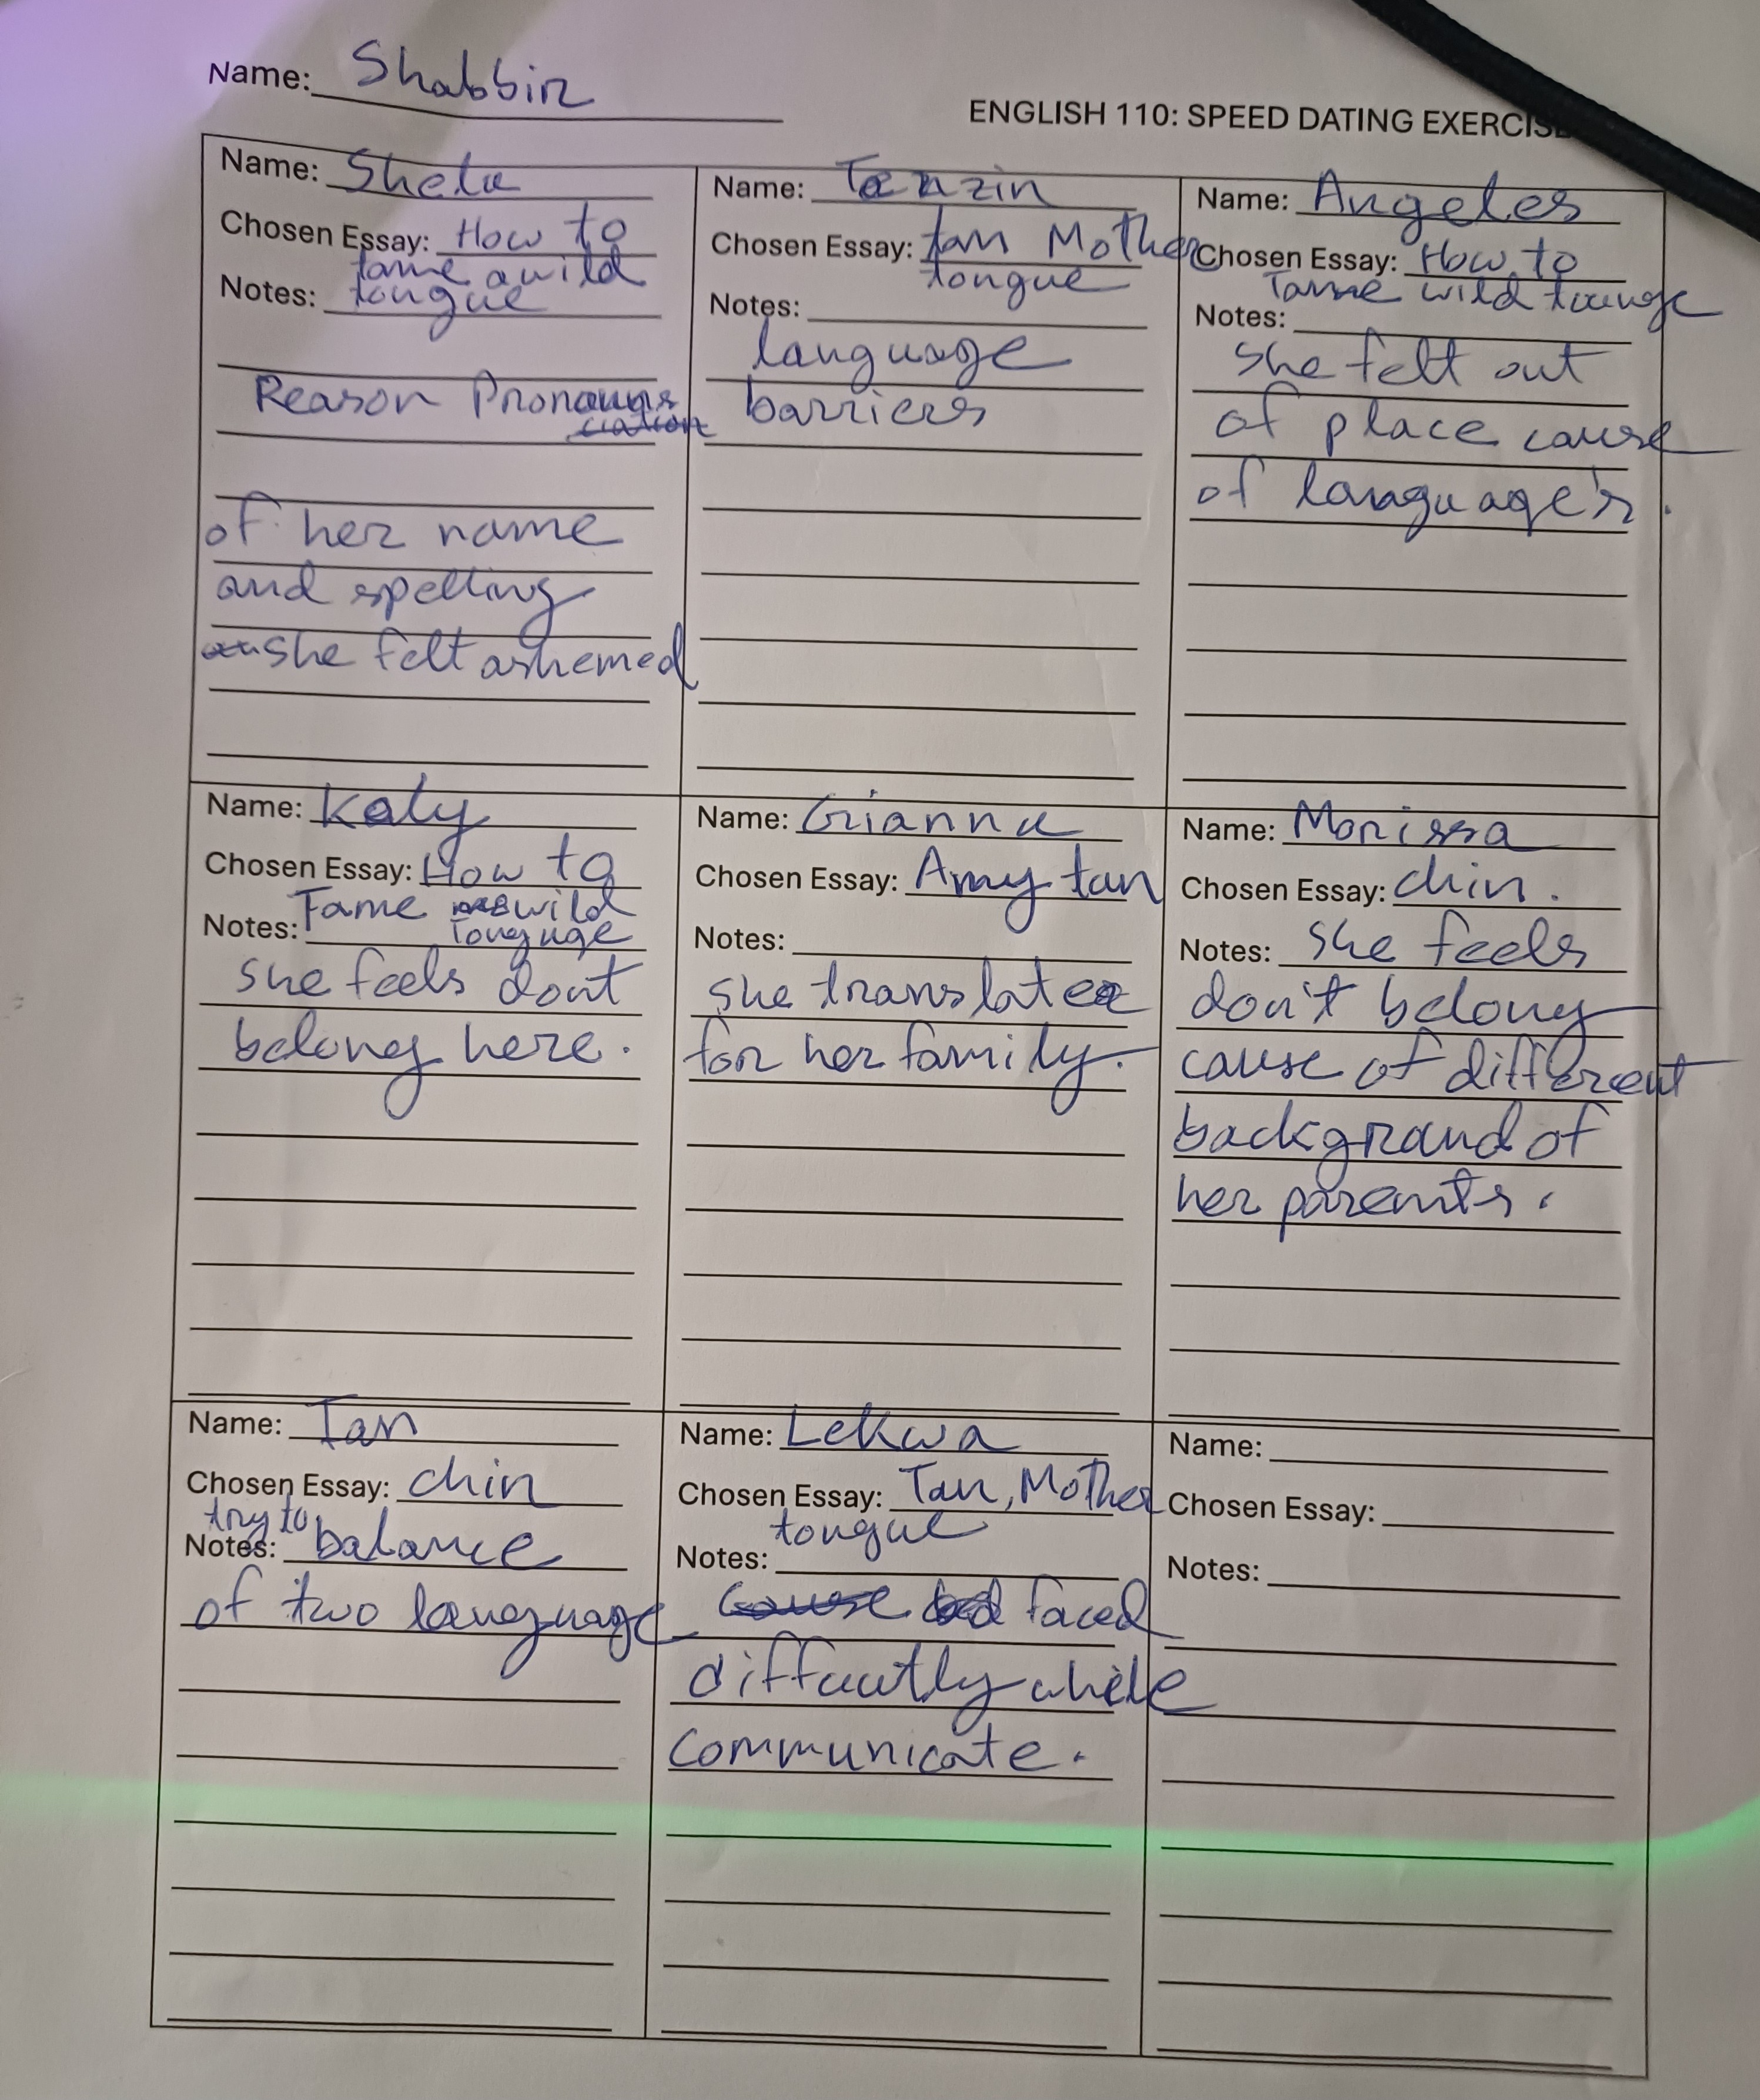 Name: Shabbir
ENGLISH 110: SPEED DATING EXERCISE
Name: Shela
Chosen Essay: How to
tame a wild
Notes: tongue
Reason Pronouns
ciation
of her name
and spelling
she felt ashemed
Name: Tenzin
Chosen Essay: tan Mother
tongue
Notes:
language
barriers
Name: Angeles
Chosen Essay: How to
Tame wild tounge
Notes:
she felt out
of place cause
of language's.
Name: Kaly
Chosen Essay: How to
Tame wild
Notes: Tonguge
she feels dont
belong here.
Name: Gianna
Chosen Essay: Amy tan
Notes:
she translater
for her family.
Name: Morissa
Chosen Essay: chin.
Notes: she feels
don't belong
cause of different
backgraund of
her parents.
Name: Ian
Chosen Essay: chin
try to
Notes: balance
of two language
Name: Lekwa
Chosen Essay: Tan, Mother
tongue
Notes:
Cause faced
diffucutly while
communicate.
Name:
Chosen Essay:
Notes: